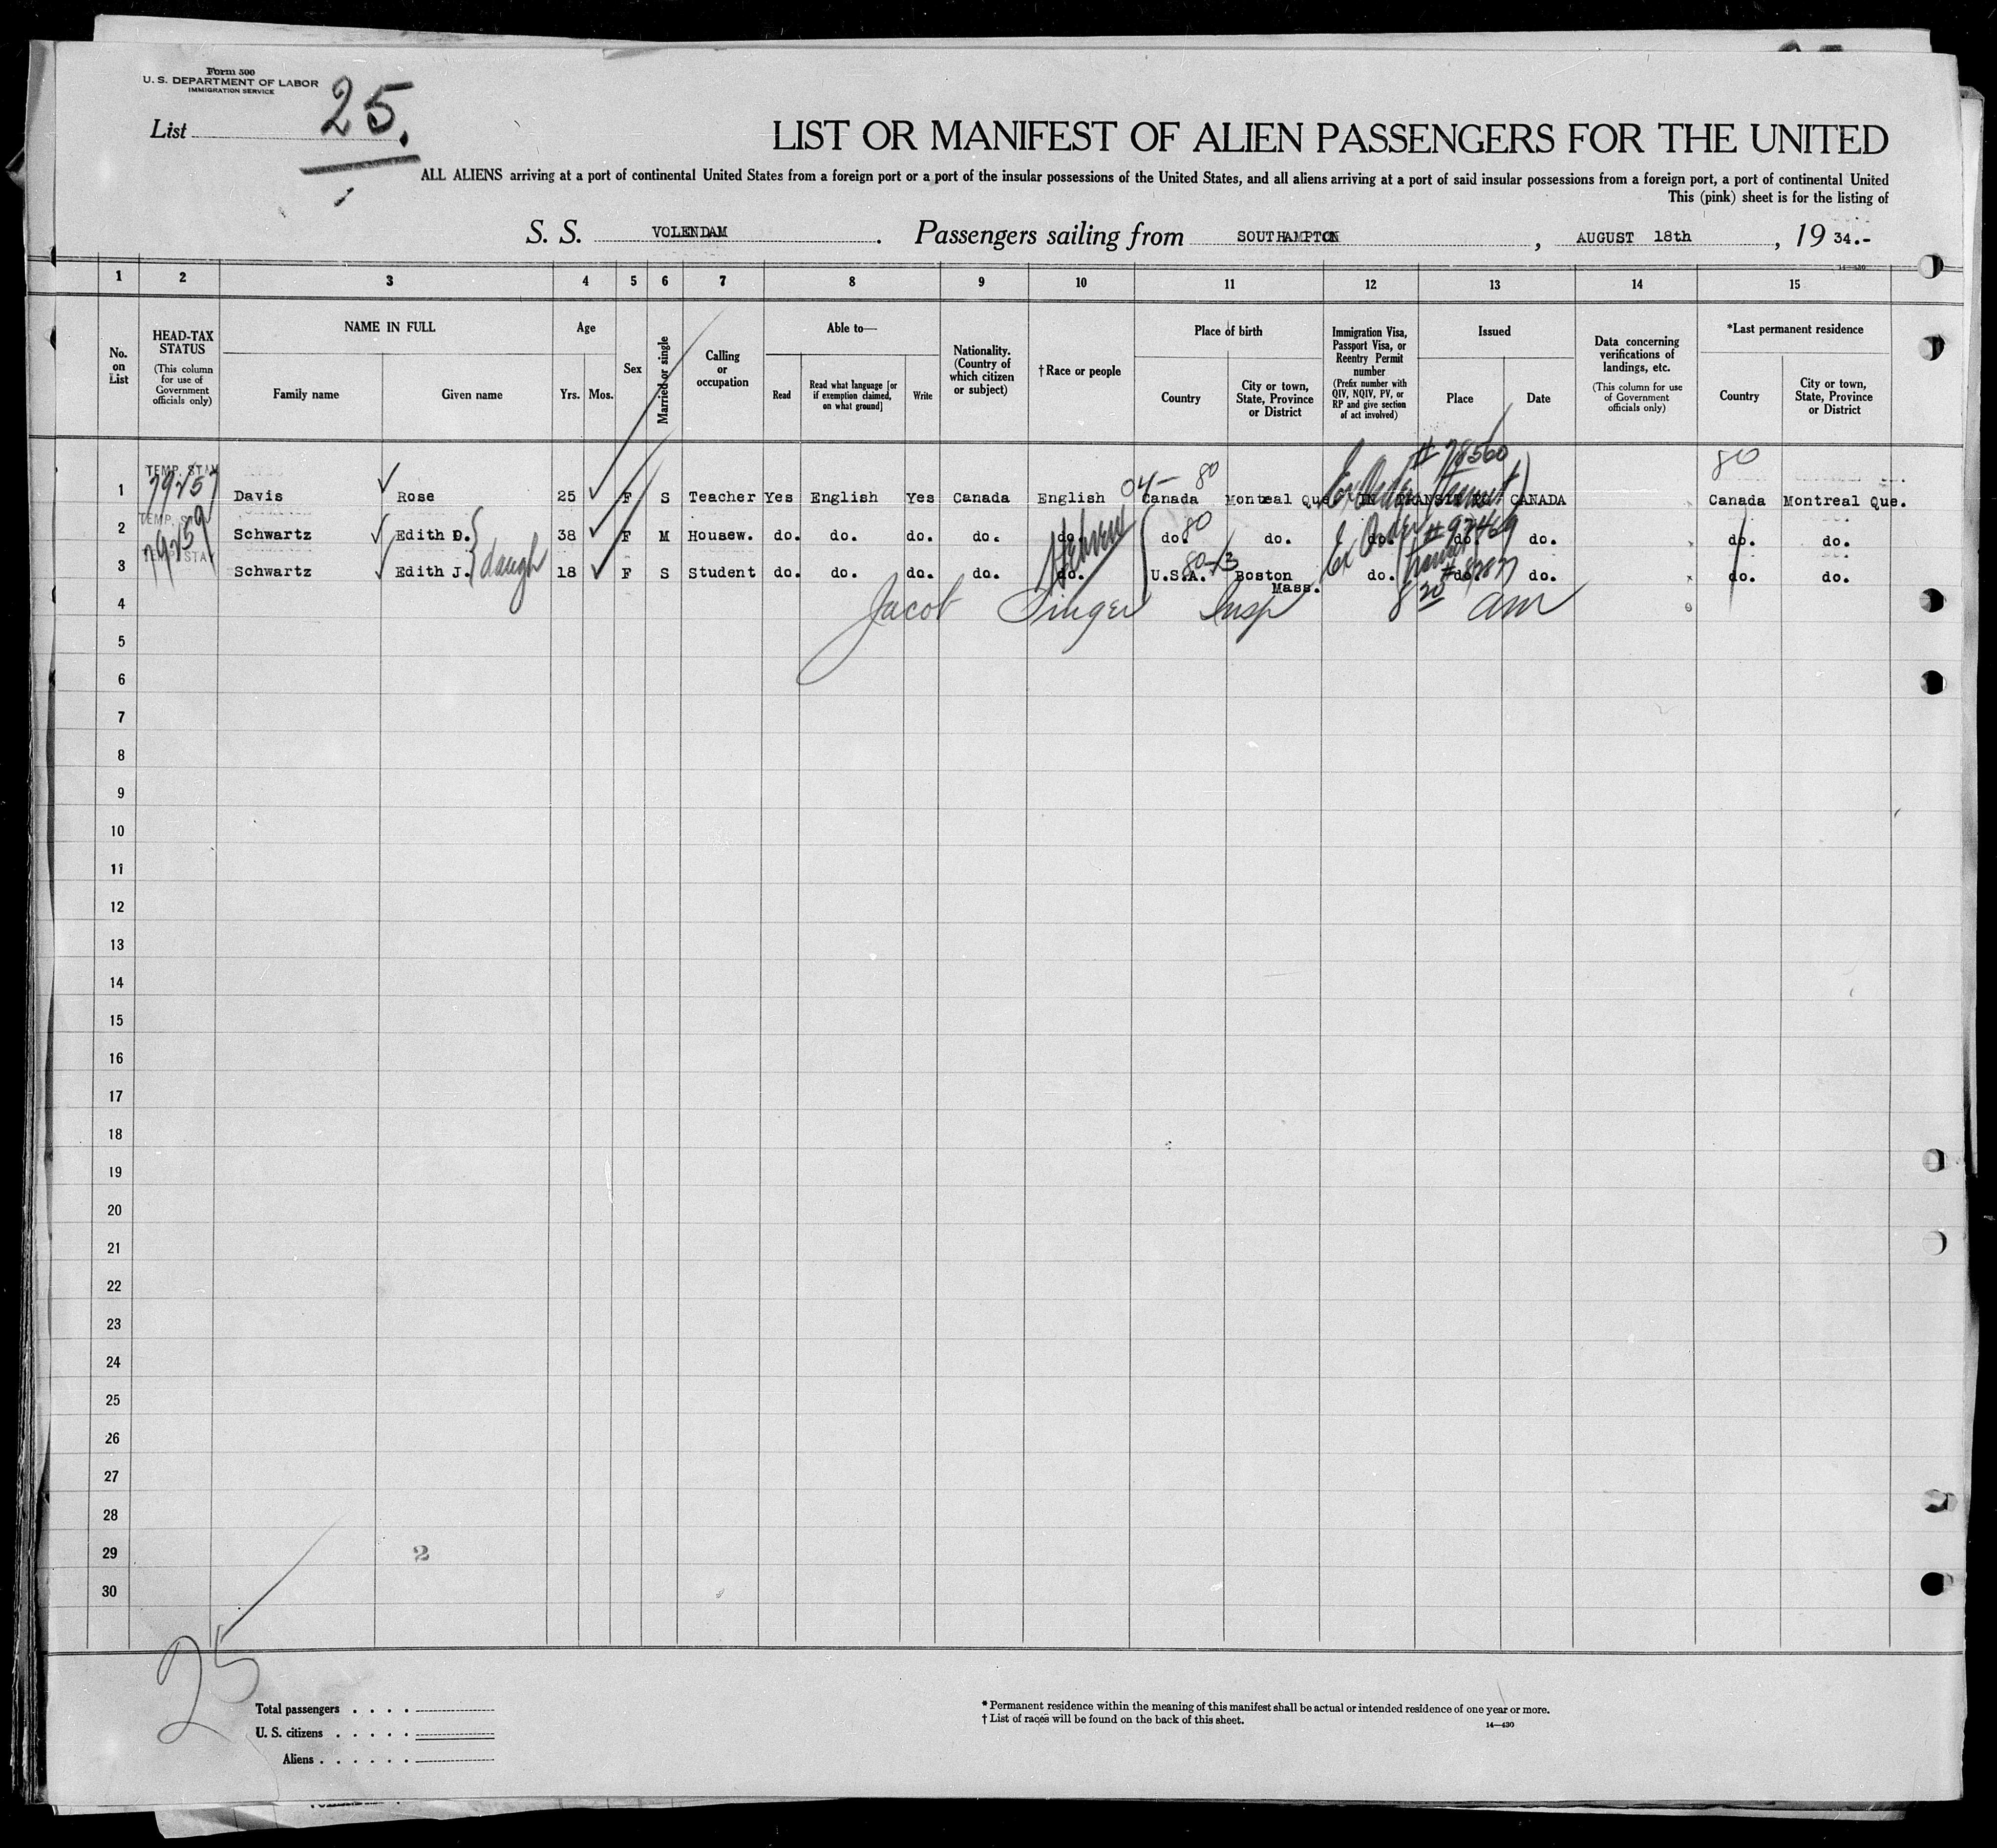 Form 500
U. S. DEPARTMENT OF LABOR
IMMIGRATION SERVICE
List 25.
LIST OR MANIFEST OF ALIEN PASSENGERS FOR THE UNITED
ALL ALIENS arriving at a port of continental United States from a foreign port or a port of the insular possessions of the United States, and all aliens arriving at a port of said insular possessions from a foreign port, a port of continental United
This (pink) sheet is for the listing of
S. S. VOLENDAM. Passengers sailing from SOUTHAMPTON, AUGUST 18th, 19 34.-
14—430
1 2 3 4 5 6 7 8 9 10 11 12 13 14 15
No. on List
HEAD-TAX STATUS
(This column for use of Government officials only)
NAME IN FULL
Family name
Given name
Age
Yrs. Mos.
Sex
Married or single
Calling or occupation
Able to—
Read
Read what language [or if exemption claimed, on what ground]
Write
Nationality. (Country of which citizen or subject)
† Race or people
Place of birth
Country
City or town, State, Province or District
Immigration Visa, Passport Visa, or Reentry Permit number
(Prefix number with QIV, NQIV, PV, or RP and give section of act involved)
Issued
Place
Date
Data concerning verifications of landings, etc.
(This column for use of Government officials only)
*Last permanent residence
Country
City or town, State, Province or District
# 78560
80
TEMP. STAY
04- 80
1 Davis Rose 25 F S Teacher Yes English Yes Canada English Canada Montreal Que IN TRANSIT TO CANADA Canada Montreal Que.
TEMP. ST
80 Ex Order # 97469
2 Schwartz Edith D. 38 F M Housew. do. do. do. do. do. do. do. do. do. do. do. do.
Hebrew
TEMP. STAY
daugh
80-13 Ex Order Transit
3 Schwartz Edith J. 18 F S Student do. do. do. do. do. U.S.A. Boston Mass. do. do. do. do. do.
4 Jacob Singer Insp 8 20 am
5
6
7
8
9
10
11
12
13
14
15
16
17
18
19
20
21
22
23
24
25
26
27
28
29 2
30
25
Total passengers . . . .
U. S. citizens . . . . .
Aliens . . . . . .
* Permanent residence within the meaning of this manifest shall be actual or intended residence of one year or more.
† List of races will be found on the back of this sheet.
14—430